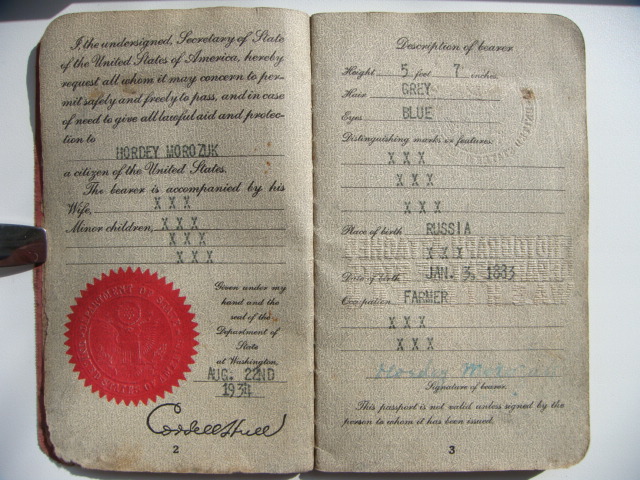 I, the undersigned, Secretary of State
of the United States of America, hereby
request all whom it may concern to per-
mit safely and freely to pass, and in case
of need to give all lawful aid and protec-
tion to
HORDEY MOROZUK
a citizen of the United States.
The bearer is accompanied by his
Wife, X X X
Minor children, X X X
X X X
X X X
Given under my
hand and the
seal of the
Department of
State
at Washington,
AUG. 22ND
1934
Cordell Hull
2
Description of bearer
Height 5 feet 7 inches.
Hair GREY
Eyes BLUE
Distinguishing marks or features:
X X X
X X X
X X X
Place of birth RUSSIA
X X X
Date of birth JAN. 3, 1883
Occupation FARMER
X X X
X X X
Hordey Morozuk
Signature of bearer.
This passport is not valid unless signed by the
person to whom it has been issued.
3